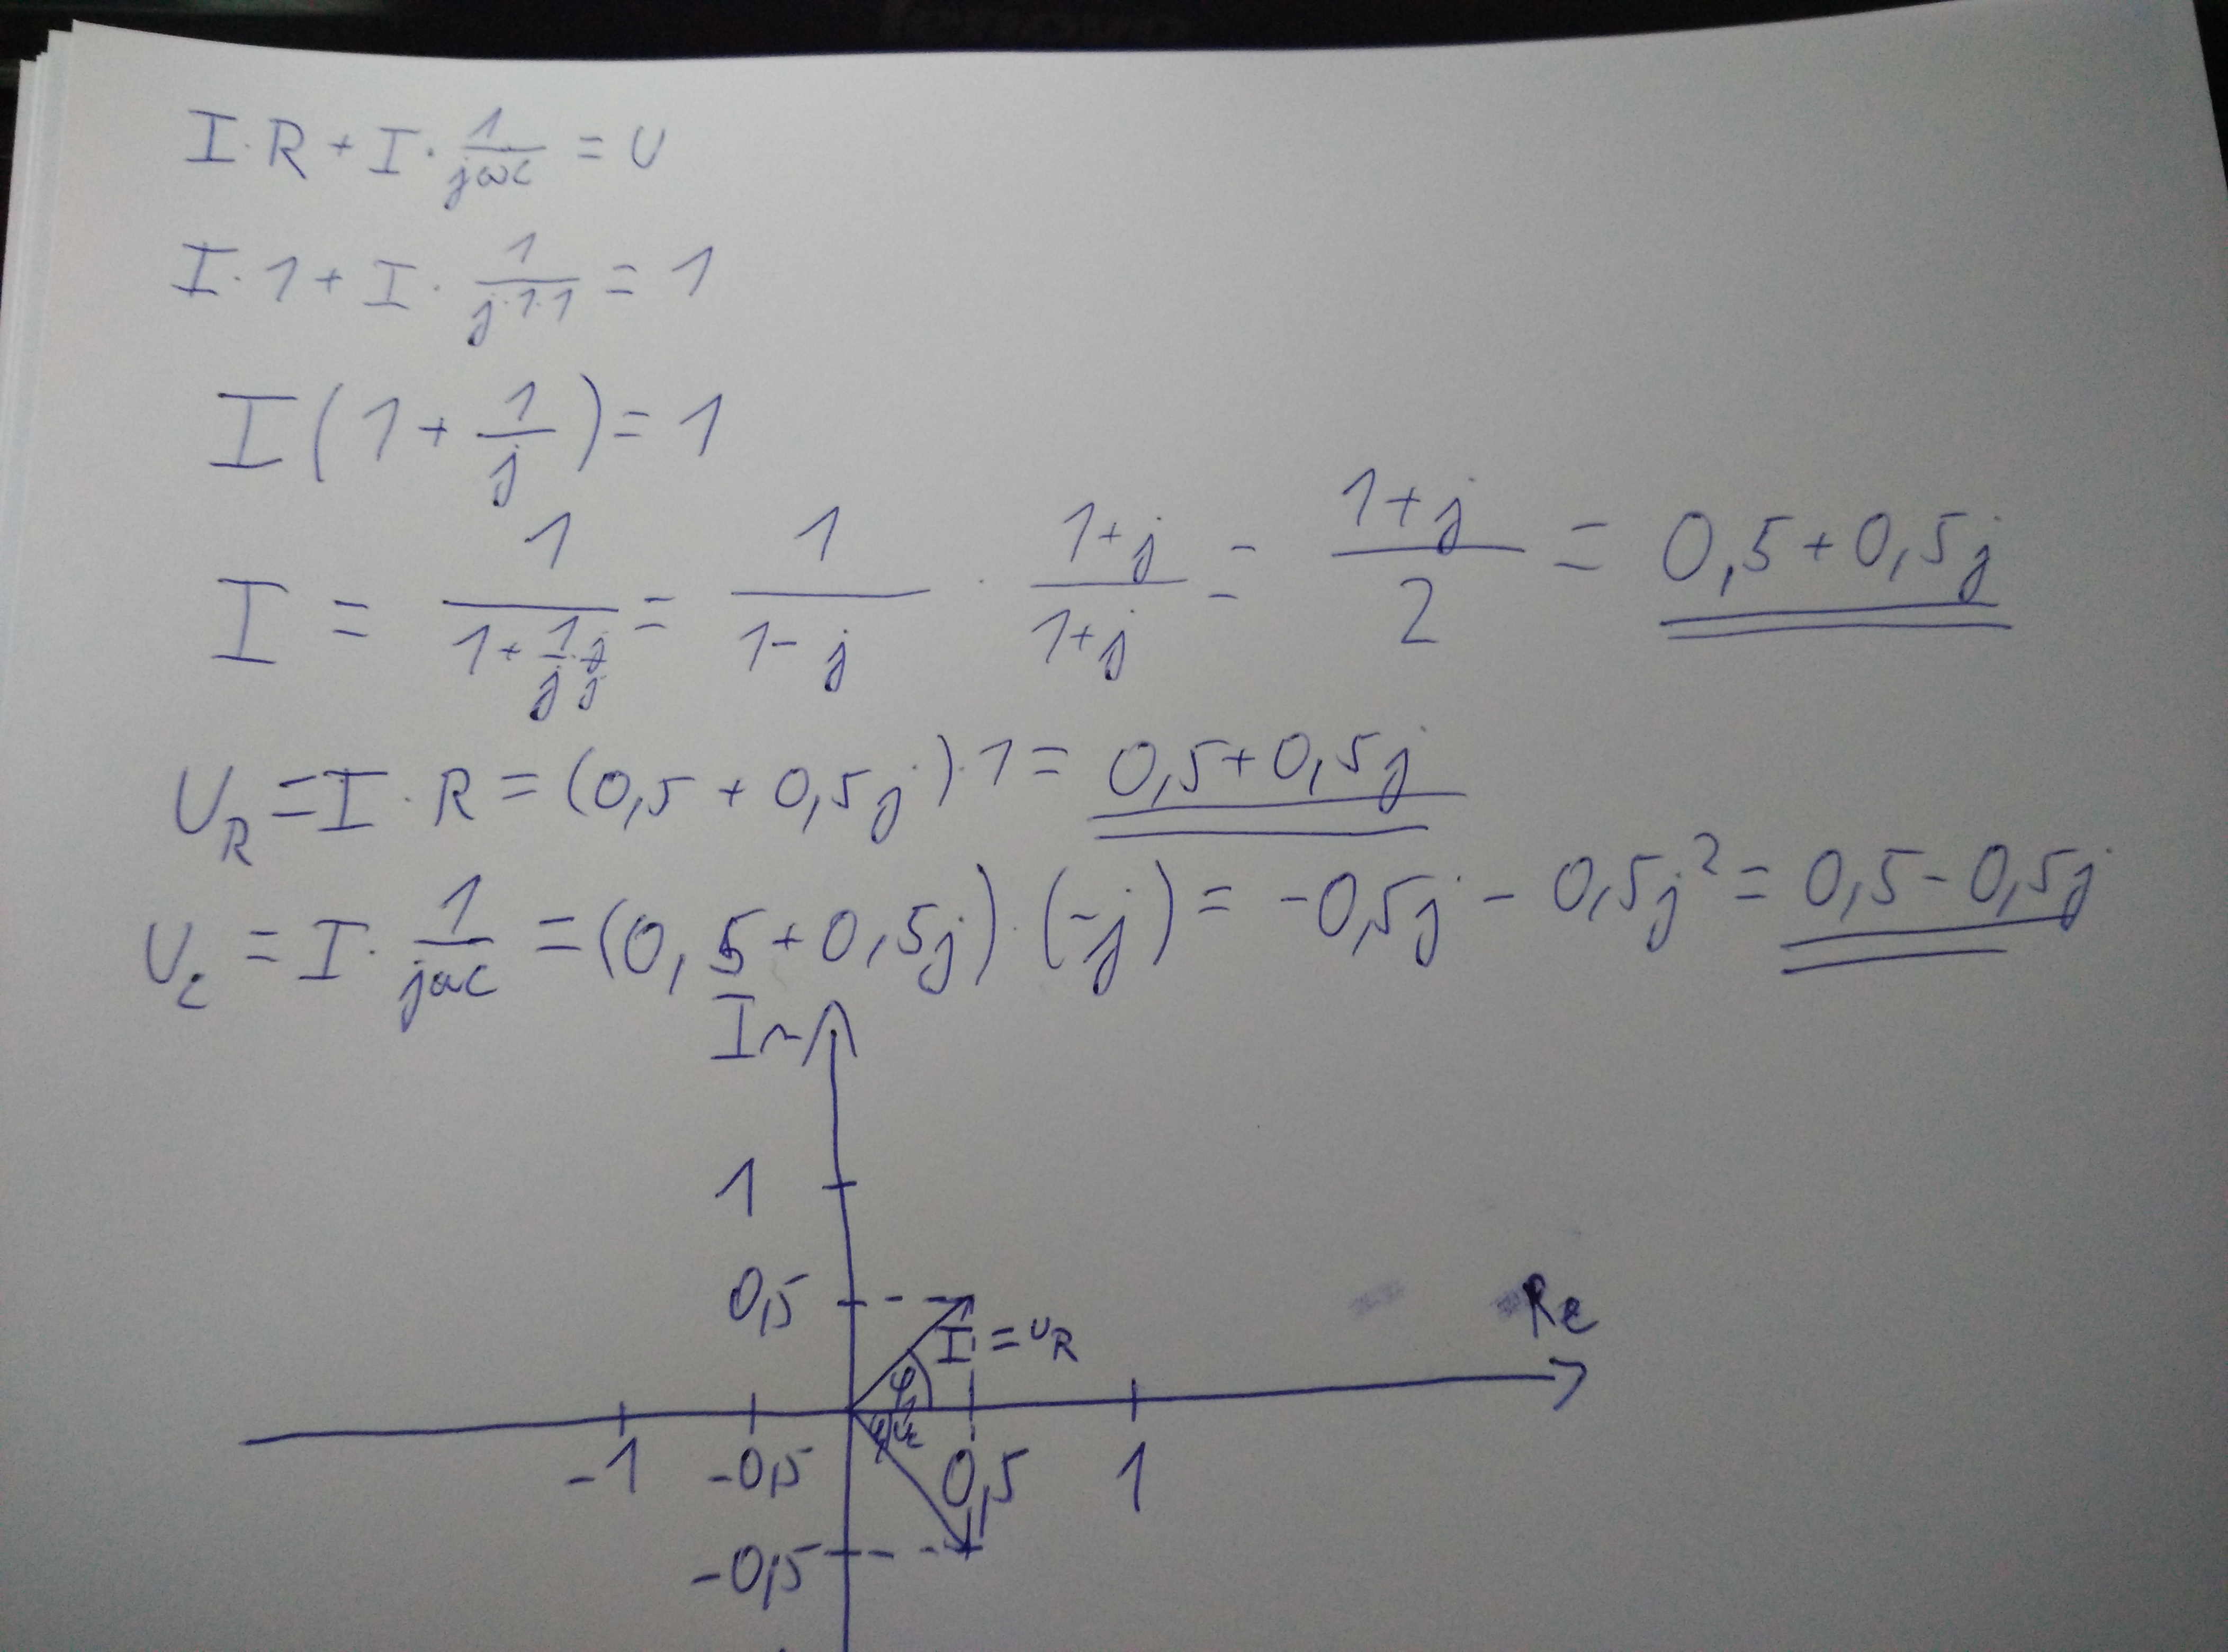 lenovo
I·R + I·1/jωC = U
I·1 + I·1/j·1·1 = 1
I(1 + 1/j) = 1
I = 1/(1 + 1/j·j/j) = 1/(1-j) · (1+j)/(1+j) = (1+j)/2 = 0,5+0,5j
U_R = I·R = (0,5 + 0,5j)·1 = 0,5+0,5j
U_C = I·1/jωC = (0,5+0,5j)·(-j) = -0,5j - 0,5j² = 0,5-0,5j
Im
1
0,5
I = U_R
Re
φ_I
φ_UC
-1 -0,5 0,5 1
-0,5